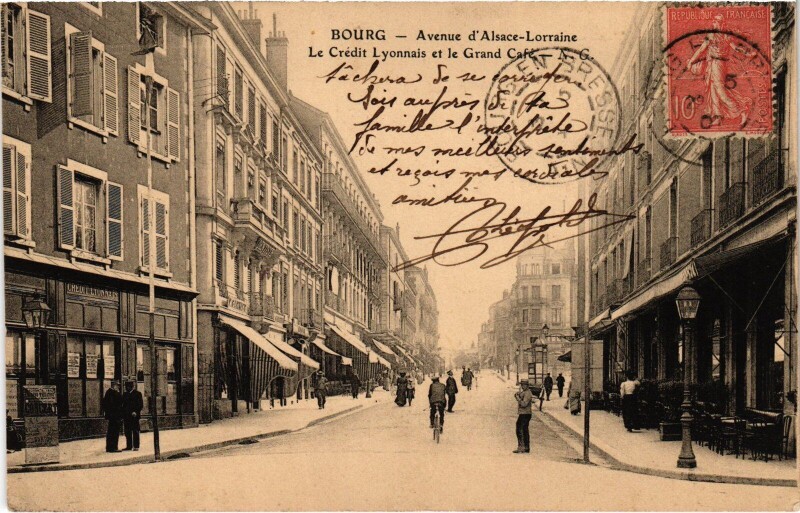 BOURG — Avenue d'Alsace-Lorraine
Le Crédit Lyonnais et le Grand Café — N. G.
tâchera de se corriger
Sois auprès de ta
famille l'interprète
de mes meilleurs sentiments
et reçois mes cordiales
amitiés
REPUBLIQUE FRANÇAISE
10
CREDIT LYONNAIS